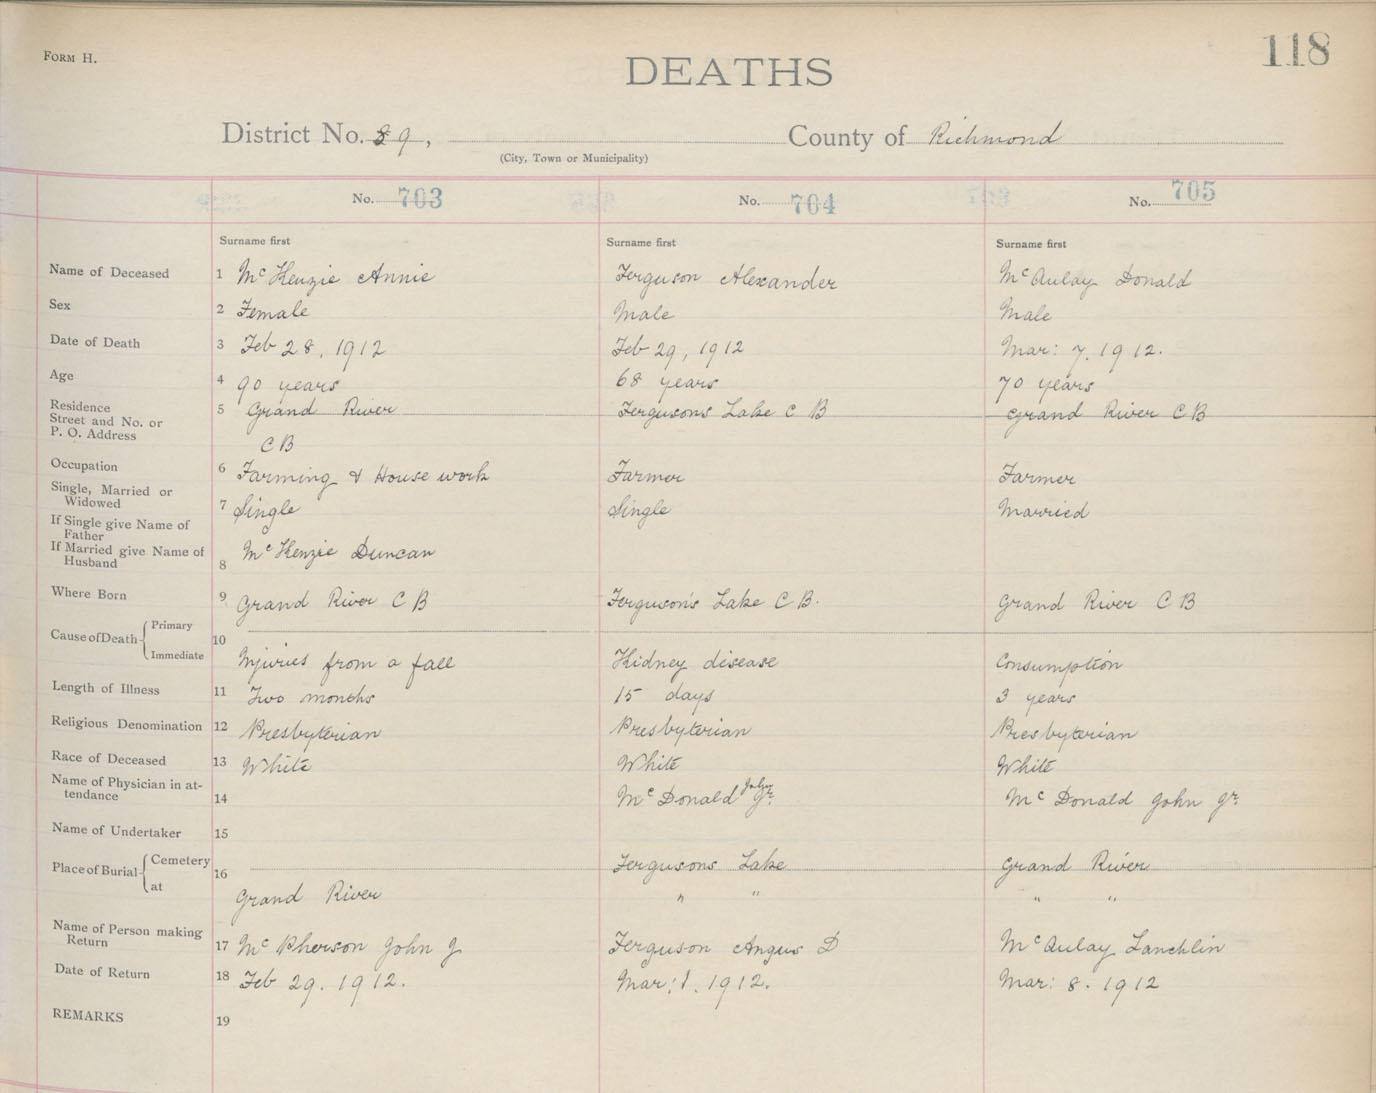 FORM H.
118
DEATHS
District No. 89, County of Richmond
(City, Town or Municipality)
No. 703 No. 704 No. 705
Surname first Surname first Surname first
Name of Deceased 1 McKenzie Annie Ferguson Alexander McAulay Donald
Sex 2 Female Male Male
Date of Death 3 Feb 28, 1912 Feb 29, 1912 Mar: 7. 1912.
Age 4 90 years 68 years 70 years
Residence 5 Grand River Fergusons Lake C B Grand River C B
Street and No. or
P. O. Address C B
Occupation 6 Farming & House work Farmer Farmer
Single, Married or
Widowed 7 Single Single Married
If Single give Name of
Father
If Married give Name of McKenzie Duncan
Husband 8
Where Born 9 Grand River C B Ferguson's Lake C B. Grand River C B
Cause of Death Primary 10
Immediate Injuries from a fall Kidney disease Consumption
Length of Illness 11 Two months 15 days 3 years
Religious Denomination 12 Presbyterian Presbyterian Presbyterian
Race of Deceased 13 White White White
Name of Physician in at-
tendance 14 McDonald John Jr. McDonald John Jr.
Name of Undertaker 15
Place of Burial Cemetery 16 Fergusons Lake Grand River
at Grand River " " " "
Name of Person making
Return 17 McPherson John J Ferguson Angus D McAulay Lanchlin
Date of Return 18 Feb 29. 1912. Mar: 1. 1912. Mar: 8. 1912
REMARKS 19